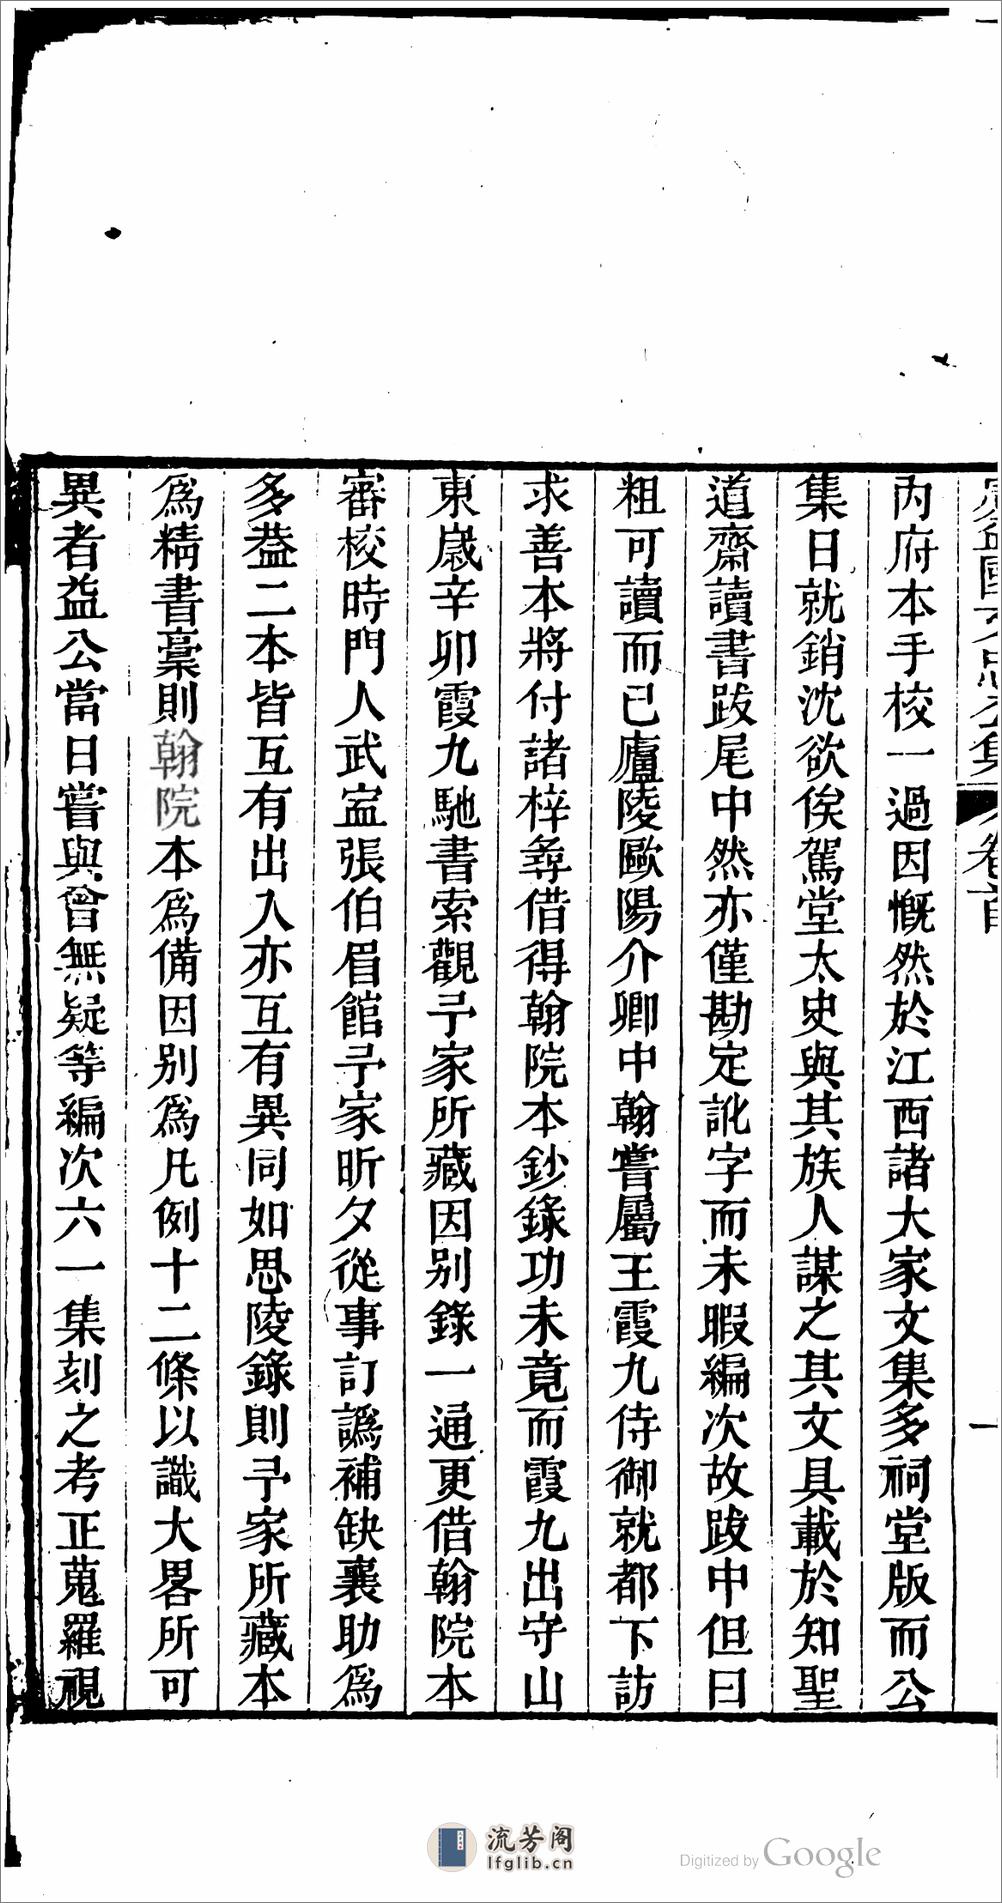 內府本手校一過因慨然於江西諸大家文集多祠堂版而公
集日就銷沈欲俟駕堂太史與其族人謀之其文具載於知聖
道齋讀書跋尾中然亦僅勘定訛字而未暇編次故跋中但曰
粗可讀而已廬陵歐陽介卿中翰嘗屬王霞九侍御就都下訪
求善本將付諸梓尋借得翰院本鈔錄功未竟而霞九出守山
東歲辛卯霞九馳書索觀予家所藏因別錄一通更借翰院本
審校時門人武寍張伯眉館予家昕夕從事訂譌補缺襄助爲
多葢二本皆互有出入亦互有異同如思陵錄則予家所藏本
爲精書稾則翰院本爲備因別爲凡例十二條以識大畧所可
異者益公當日嘗與曾無疑等編次六一集刻之考正蒐羅視
卷首
一
流芳阁
lfglib.cn
Digitized by Google